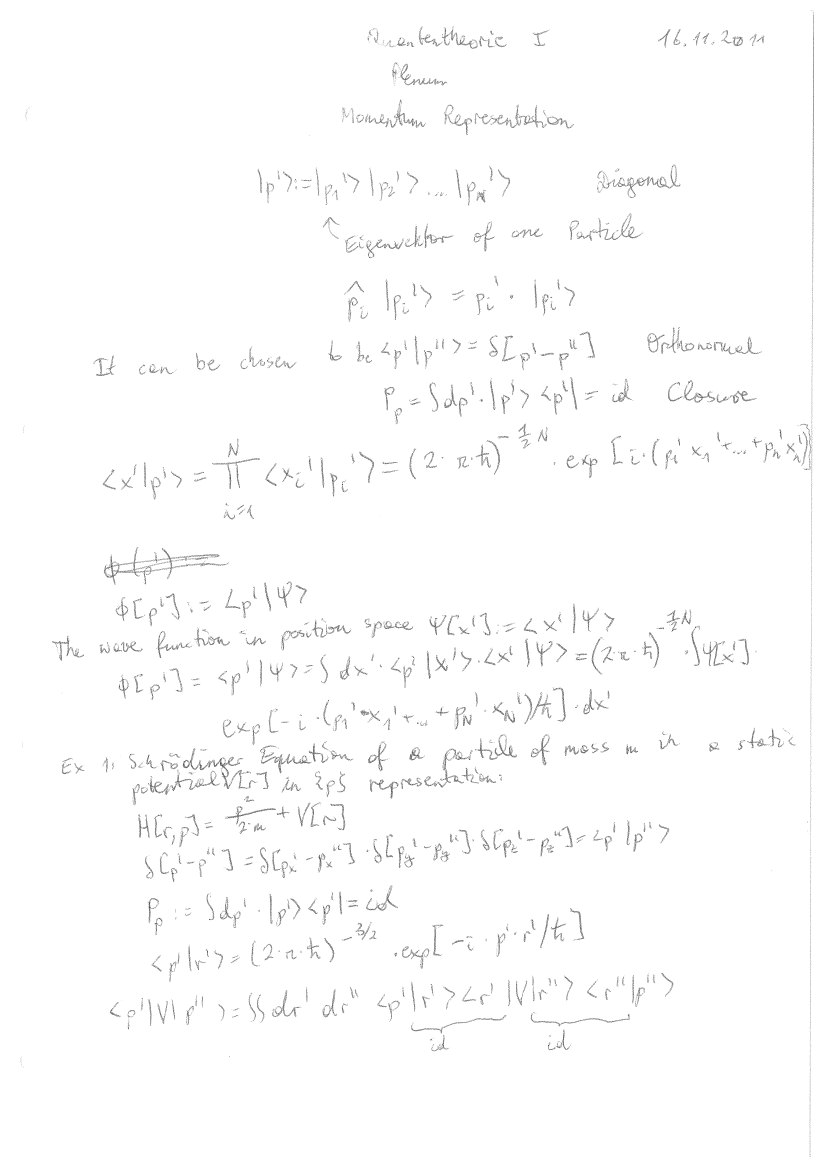 Quantentheorie I 16.11.2011
Plenum
Momentum Representation
|p'>:=|p₁'>|p₂'>....|p_N'> Diagonal
↑ Eigenvektor of one Particle
p̂ᵢ |pᵢ'> = pᵢ' · |pᵢ'>
It can be chosen to be <p'|p''> = δ[p'-p''] Orthonormal
P_p = ∫dp'·|p'><p'| = id Closure
<x'|p'> = ∏_{i=1}^{N} <xᵢ'|pᵢ'> = (2·π·ħ)^{-½N} · exp[i·(p₁'x₁'+...+pₙ'xₙ')]
ϕ(p') =
ϕ[p'] := <p'|Ψ>
The wave function in position space Ψ[x'] := <x'|Ψ>
ϕ[p'] = <p'|Ψ> = ∫dx'·<p'|x'>·<x'|Ψ> = (2·π·ħ)^{-½N}·∫Ψ[x']·
exp[-i·(p₁'·x₁'+...+p_N'·x_N')/ħ]·dx'
Ex 1: Schrödinger Equation of a particle of mass m in a static
potential V[r] in {p} representation:
H[r,p] = p²/2·m + V[r]
δ[p'-p''] = δ[pₓ'-pₓ'']·δ[p_y'-p_y'']·δ[p_z'-p_z''] = <p'|p''>
P_p := ∫dp'·|p'><p'| = id
<p'|r'> = (2·π·ħ)^{-3/2} ·exp[-i·p'·r'/ħ]
<p'|V|p''> = ∫∫dr' dr'' <p'|r'><r'|V|r''><r''|p''>
id id